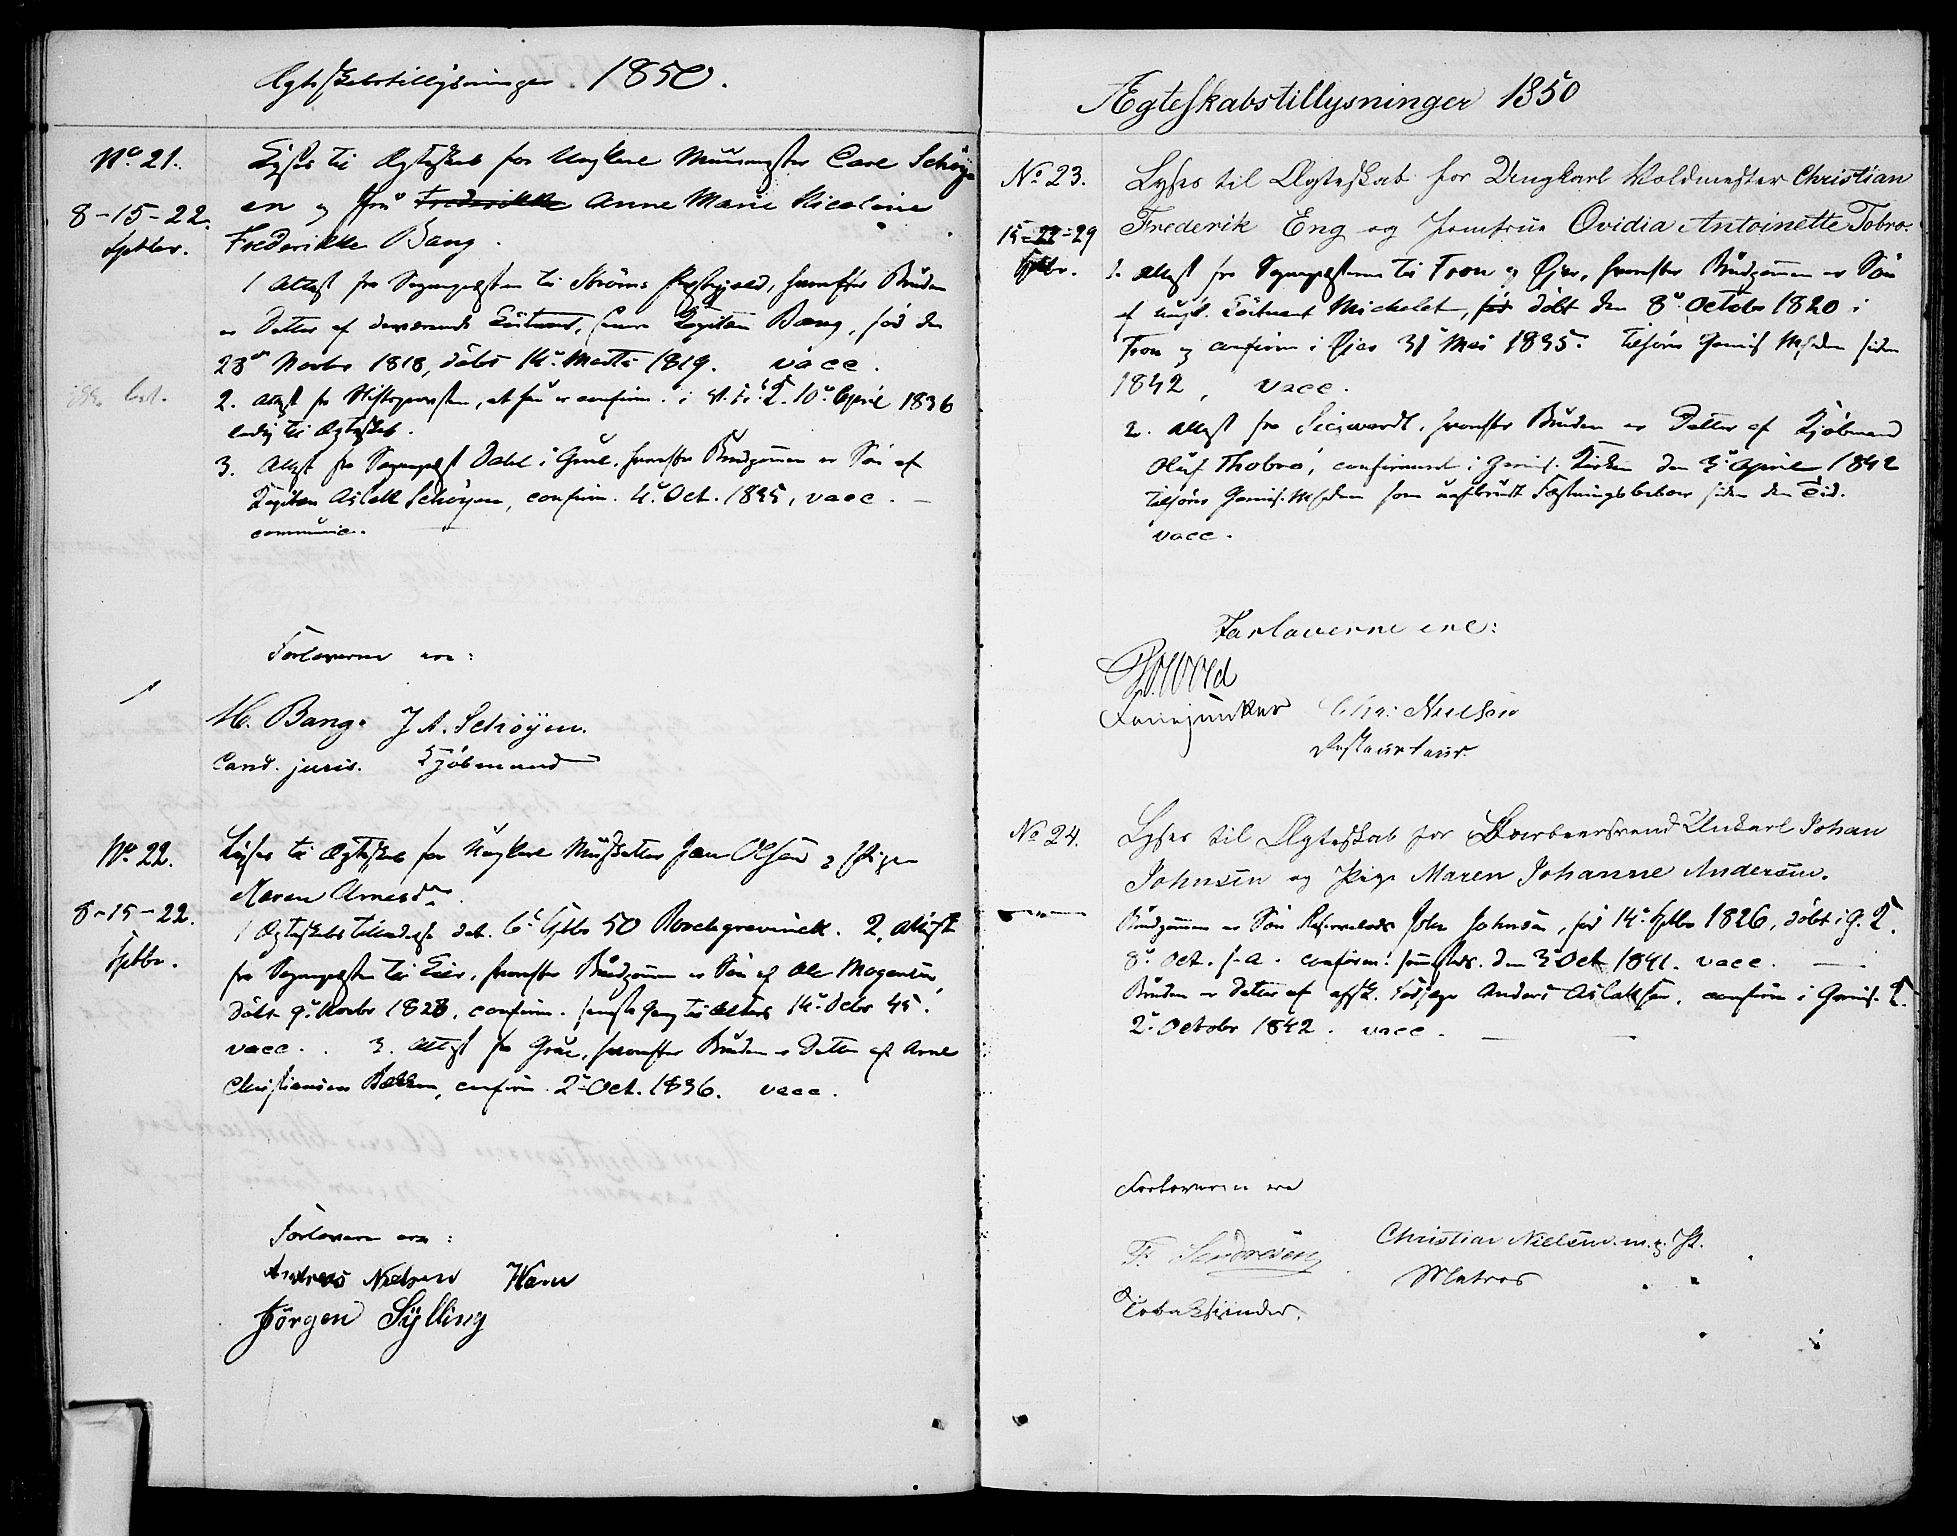 Ægteskabstillysninger. 1850.
No 21.
8-15-22.
Septbr.
Lyses til Ægteskab for Ungkarl Muurmester Carl Schøy-
en og Frk Frederikke Anne Marie Nicoline
Frederikke Bang.
1 Attest fra Sognepresten til Strøms Præstegjeld, hvorefter Bruden
er Datter af daværende Løitnant, senere Kapitain Bang, født den
28de Novbr 1818, døbt 14de Marts 1819. vacc.
2. Attest fra Stiftsprovsten, at hun er confirm. i V. Fr. K. 10de April 1836
ledig til Ægteskab.
3. Attest fra Sognepræst Dahl i Grue, hvorefter Brudgommen er Søn af
Kapitain Aslak Schøyen, confirm. 4de Oct. 1835, vacc. —
communic.
Forloverne ere:
H. Bang. J A. Schøyen.
Cand. juris. Kjøbmand
No 22.
8-15-22.
Septbr.
Lyses til Ægteskab for Ungkarl Musketeer Jan Olsen og Pigen
Maren Arnesdtr.
1 Ægteskabstilladelse dat. 6te Septbr 50 2. Attest
fra Sognepræsten til Eier, hvorefter Brudgommen er Søn af Ole Mogensen,
døbt 9de Novbr 1828, confirm. 14de Octbr 45.
vacc. . 3. Attest fra Grue, hvorefter Bruden er Datter af Arne
Christiansen Bakken, confirm. 2de Oct. 1836. vacc.
Forlovere ere:
Andreas Nielsen Hovu
Jørgen Sylling
Ægteskabstillysninger 1850
No 23.
15-22-29
Septbr.
Lyses til Ægteskab for Ungkarl Voldmester Christian
Frederik Eng og Jomfrue Ovidia Antoinette Tobro.
1. Attest fra Sognepræsten til Tron og Øier, hvorefter Brudgommen er Søn
af ungk. Løitnant Michelet, født døbt den 8de October 1820 i
Tron og confirm i Øier 31 Mai 1835. Tilhører Garnis. Msheden siden
1842, vacc.
2. Attest fra Sicewardt, hvorefter Bruden er Datter af Kjøbmand
Oluf Thobro, confirmeret i Garnis. Kirken den 3de April 1842
tilhører Garnis. Msheden som uafbrudt Fæstningsbeboer siden den Tid.
vacc.
Forloverne ere:
Wold
Fanejunker Chr: Nielsen
Restaurteur
No 24.
Lyses til Ægteskab for Ungkarl Johan
Johnsen og Pige Maren Johanne Andersen.
Brudgommen er Søn John Johnsen, født 14de Septbr 1826, døbt i G. K.
8de Oct. s. a. confirm: sammesteds. den 3 Oct 1841. vacc. —
Bruden er Datter af afsk. Anders Aslaksen, confirm i Garnis. K.
2de Octobr 1842. vacc. —
Forloverne ere
Fr. Christian Nielsen. m. p. P.
Matros
Tobaksbinder.